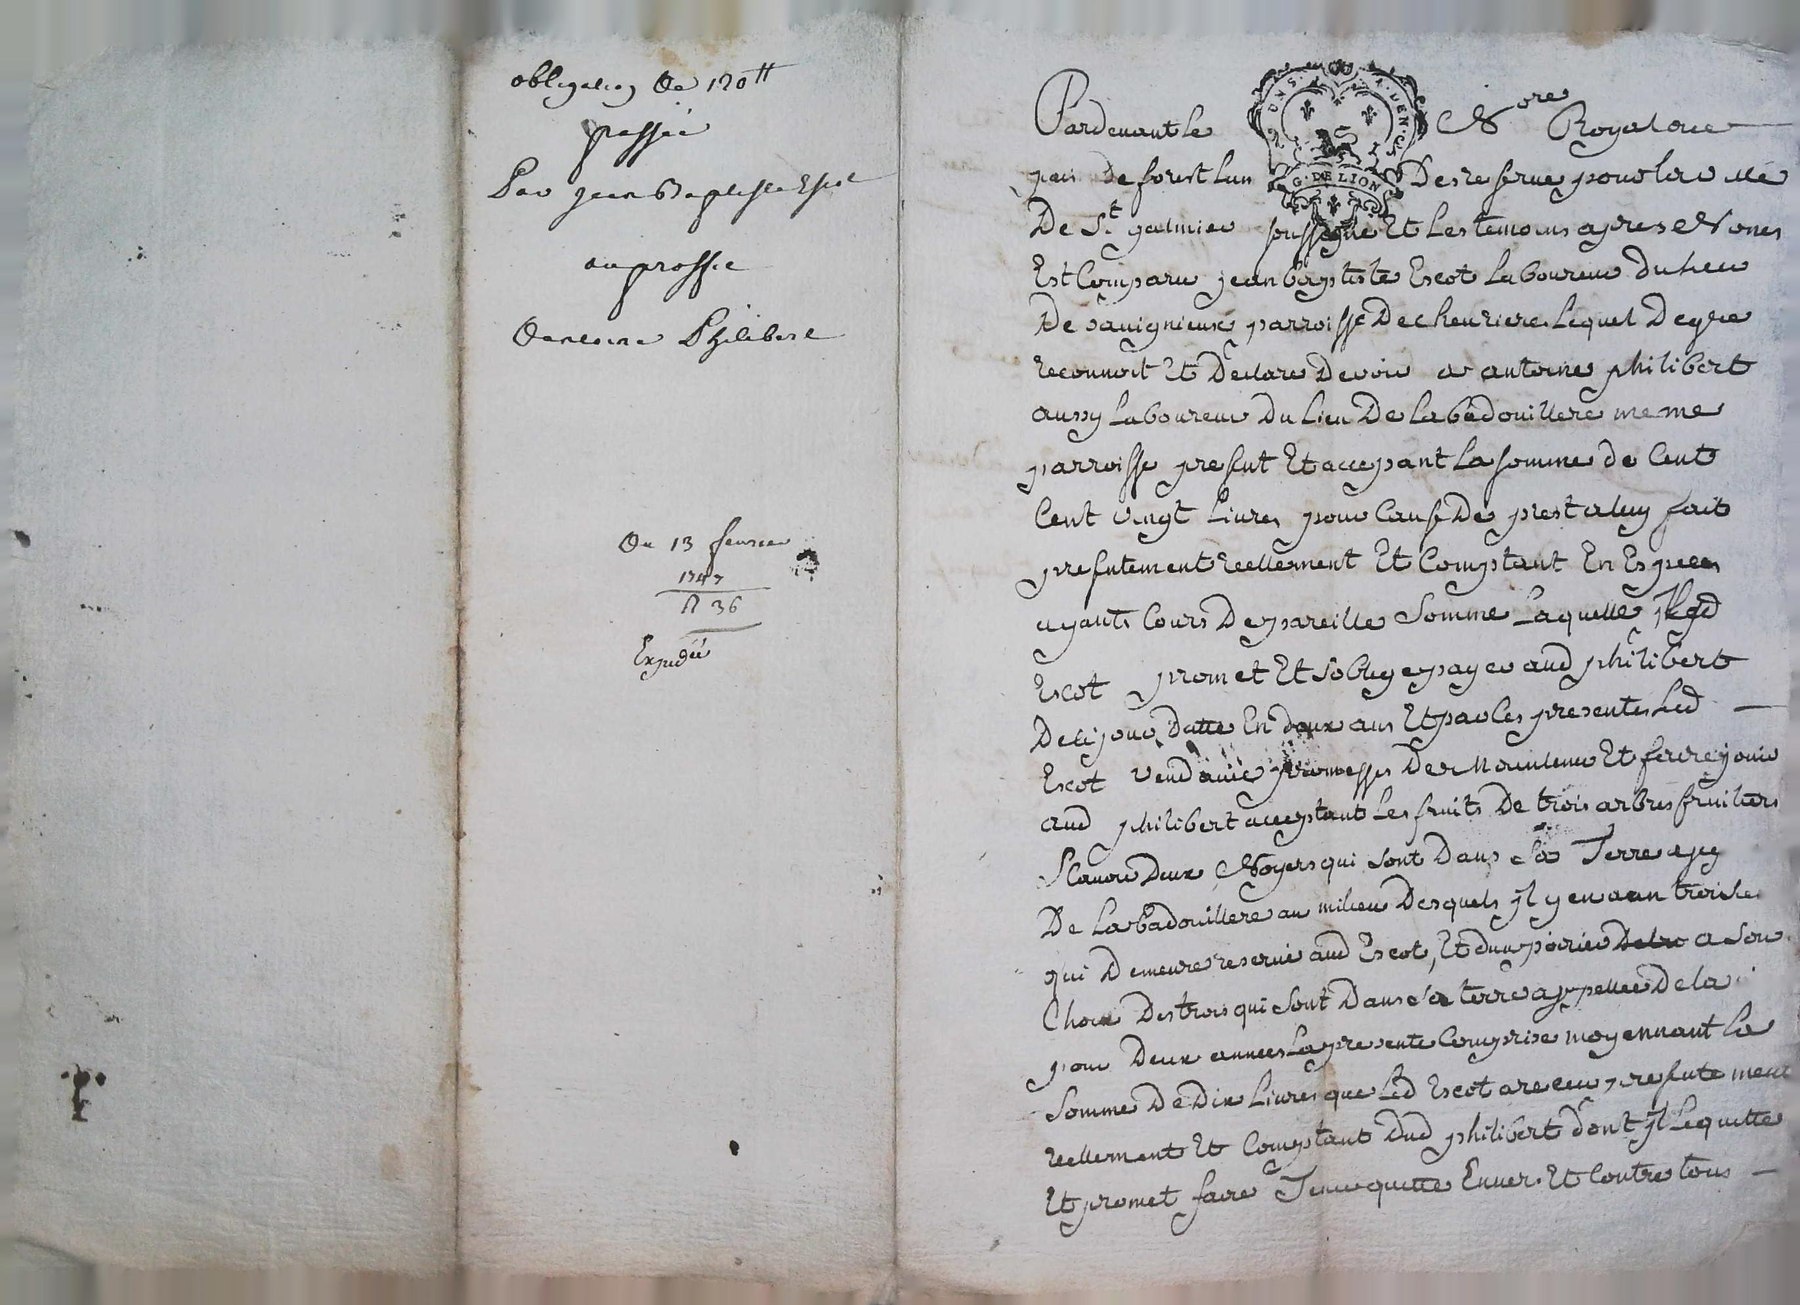 obligation De 120tt
passée
Par jean Baptiste Escot
au proffit
Dantoine Philibert
Du 13 fevrier
1747
n 36
Expediée
Pardevant le Nore Royal au
DEUNS. DEN. CS
G. DE LION
pais de forest Lun Des reserue pour la ville
De St. galmier soussigné Et Les temoins apres Nomes
Est Comparu jean baptiste Escot Laboureur du Lieu
De sauignieux parroisse De cheuriere Lequel De gre
reconnoit Et Declare Devoir a antoine philibert
aussy Laboureur Du Lieu De La badouillere meme
parroisse present Et accepant La somme de Cent
Cent vingt Livres pour Cause De prest a luy fait
presentement reellement Et Comptant En Especes
ayants Cours De pareille Somme Laquelle led
Escot promet Et soblige payer aud philibert
De ce jour Datte En deux ans Et par les presentes Led
Escot vend auec promesses De Maintenir Et faire jouir
aud philibert acceptant Les fruits De trois arbres fruitiers
Scauoir Deux Noyers qui sont Dans sa Terre apy
De La badouillere au milieu Desquels jl y en a un troisie
qui Demeure reserué aud Escot, Et dun poirier a son
Choix Des trois qui sont Dans sa terre appellée De la
pour Deux années La presente Comprise moyennant La
somme De Dix Livres que Led Escot a receu presentement
reellement Et Comptant Dud philibert dont jl Le quitte
Et promet faire Tenir quitte Enuers Et Contre tous